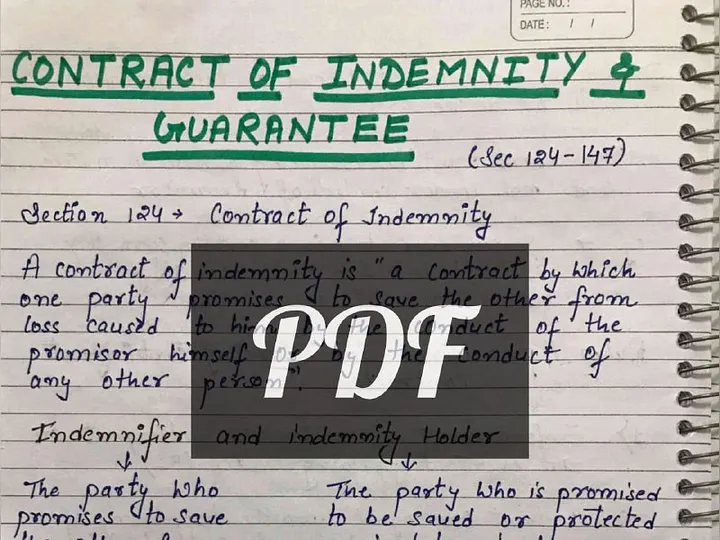 PAGE NO.:
DATE: / /
CONTRACT OF INDEMNITY &
GUARANTEE
(Sec 124-147)
Section 124 → Contract of Indemnity
A contract of indemnity is "a contract by which
one party promises to save the other from
loss caused to him by the conduct of the
promisor himself or by the conduct of
any other person".
PDF
Indemnifier and indemnity Holder
↓ ↓
The party who The party who is promised
promises to save to be saved or protected